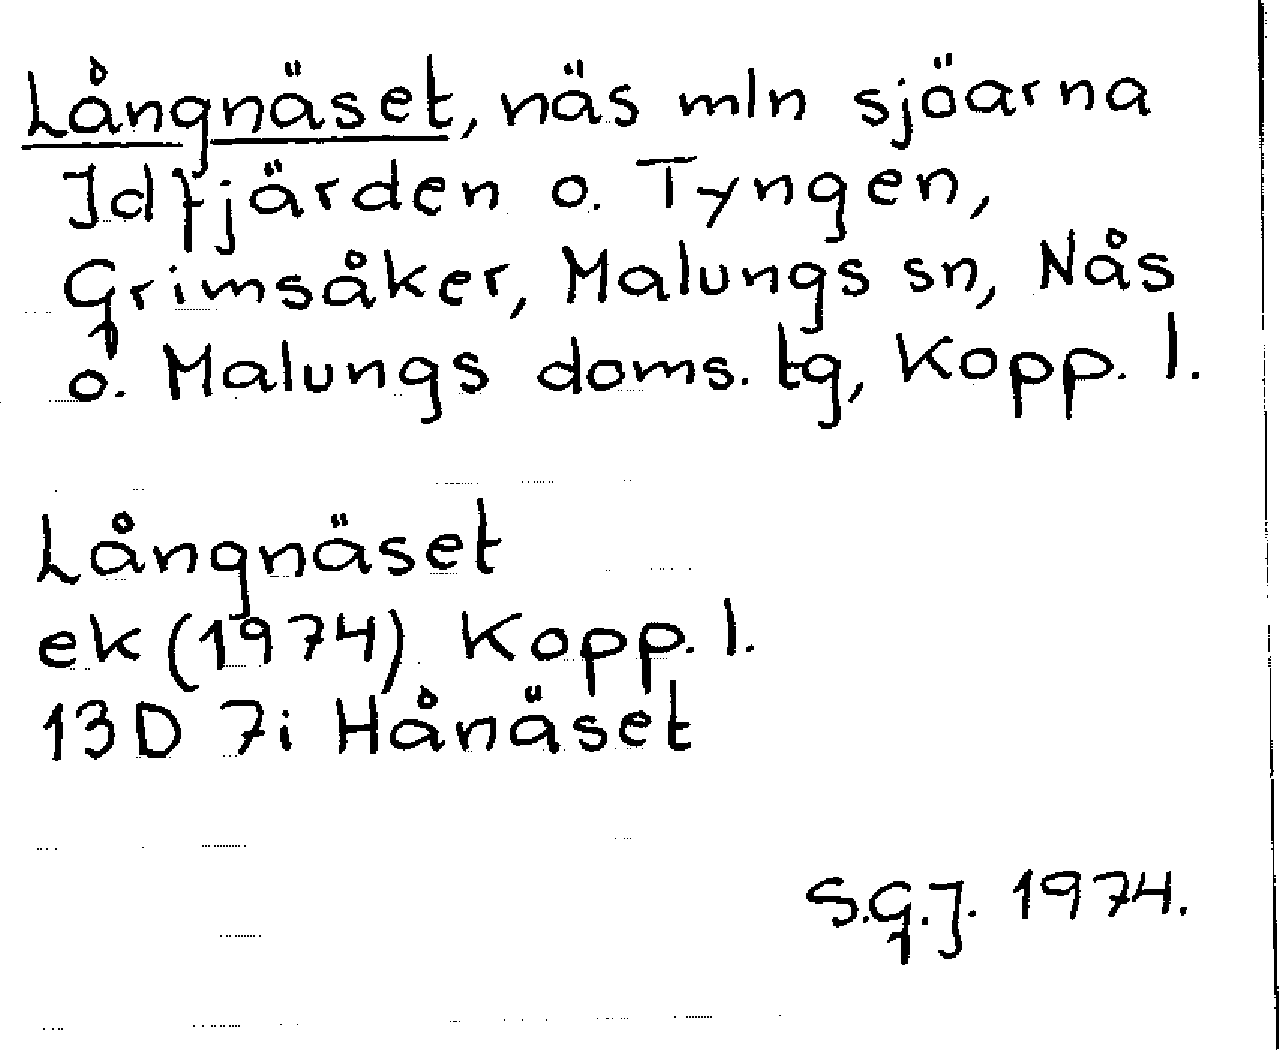 Långnäset, näs mln sjöarna
Idfjärden o. Tyngen,
Grimsåker, Malungs sn, Nås
o. Malungs doms. tg, Kopp. l.
Långnäset
ek (1974) Kopp. l.
13D 7i Hånäset
S.G.J. 1974.